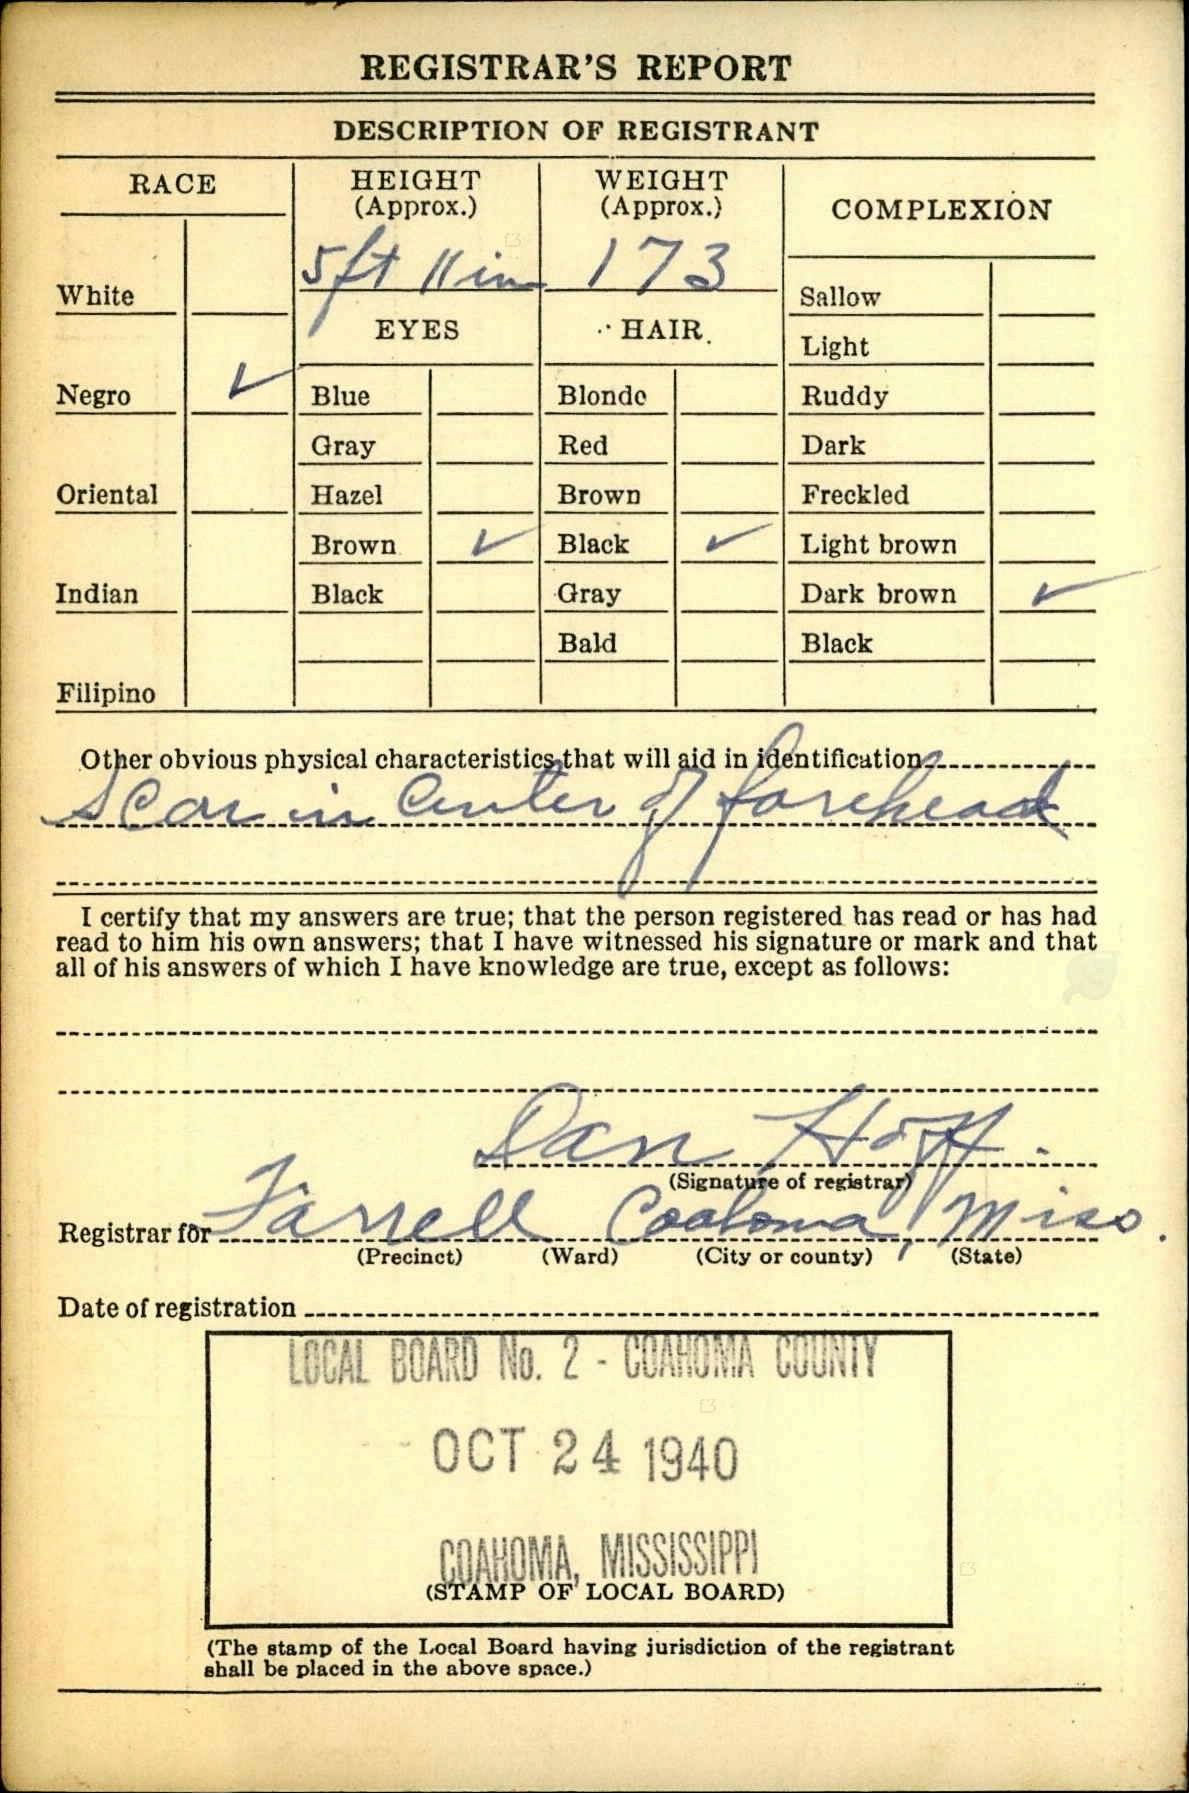 REGISTRAR'S REPORT
DESCRIPTION OF REGISTRANT
RACE
HEIGHT
(Approx.)
WEIGHT
(Approx.)
COMPLEXION
5 ft 11 in
173
White
Sallow
EYES
HAIR
Light
Negro ✓
Blue
Blonde
Ruddy
Gray
Red
Dark
Oriental
Hazel
Brown
Freckled
Brown ✓
Black ✓
Light brown
Indian
Black
Gray
Dark brown ✓
Bald
Black
Filipino
Other obvious physical characteristics that will aid in identification
Scar in Center of forehead
I certify that my answers are true; that the person registered has read or has had
read to him his own answers; that I have witnessed his signature or mark and that
all of his answers of which I have knowledge are true, except as follows:
Dan Hoff.
(Signature of registrar)
Registrar for Farrell Coahoma, Miss.
(Precinct) (Ward) (City or county) (State)
Date of registration
LOCAL BOARD No. 2 - COAHOMA COUNTY
OCT 24 1940
COAHOMA, MISSISSIPPI
(STAMP OF LOCAL BOARD)
(The stamp of the Local Board having jurisdiction of the registrant
shall be placed in the above space.)